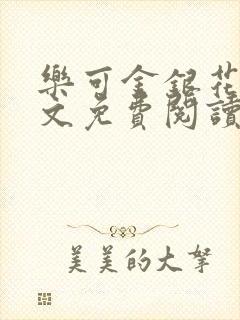 樂可金銀花
文免費閱讀
美美的大拏